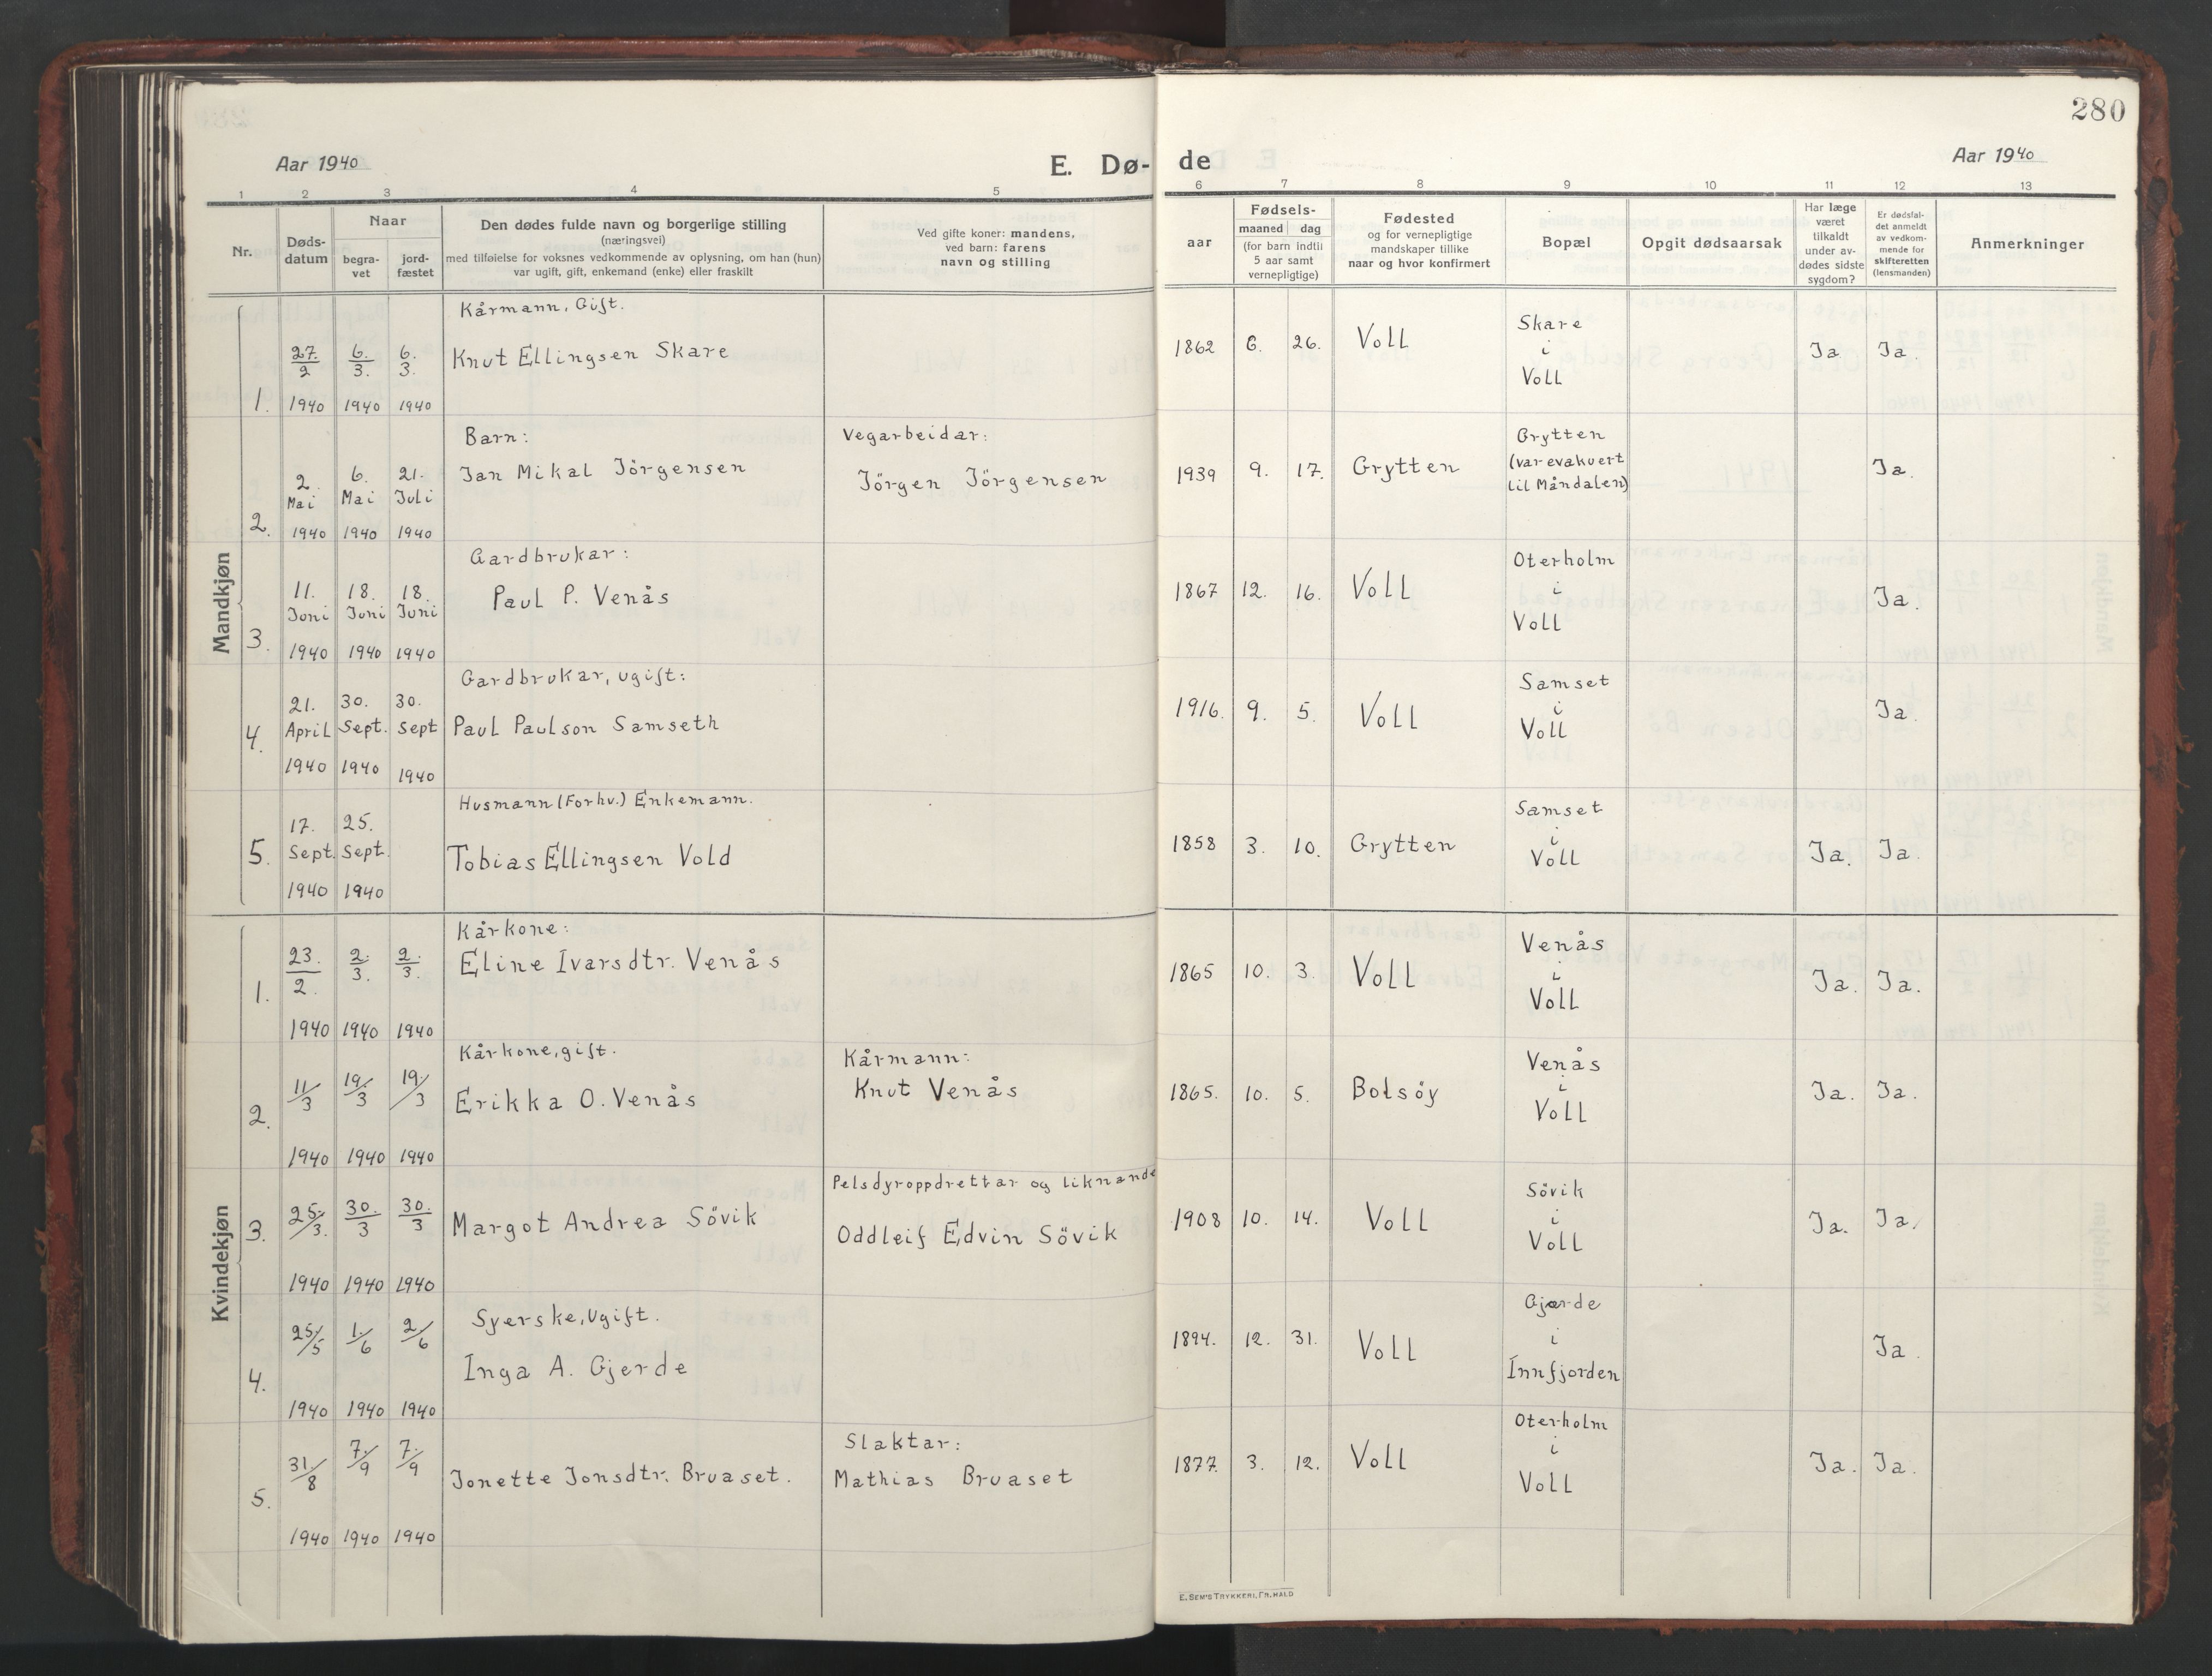 280
Aar 1940
E. Dø-
de
Aar 1940
1 2 3 4 5 6 7 8 9 10 11 12 13
Nr.
Døds-
datum
Naar
begra-
vet
jord-
fæstet
Den dødes fulde navn og borgerlige stilling
(næringsvei)
med tilføielse for voksnes vedkommende av oplysning, om han (hun)
var ugift, gift, enkemand (enke) eller fraskilt
Ved gifte koner: mandens,
ved barn: farens
navn og stilling
Fødsels-
aar
maaned dag
(for barn indtil
5 aar samt
vernepligtige)
Fødested
og for vernepligtige
mandskaper tillike
naar og hvor konfirmert
Bopæl
Opgit dødsaarsak
Har læge
været
tilkaldt
under av-
dødes sidste
sygdom?
Er dødsfal-
det anmeldt
av vedkom-
mende for
skifteretten
(lensmanden)
Anmerkninger
Mandkjøn
1.
27./2 1940
6./3. 1940
6./3. 1940
Kårmann, Gift.
Knut Ellingsen Skare
1862 6. 26.
Voll
Skare
i
Voll
Ja Ja.
2.
2. Mai 1940
6. Mai 1940
21. Juli 1940
Barn:
Jan Mikal Jörgensen
Vegarbeidar:
Jörgen Jörgensen
1939 9. 17.
Grytten
Grytten
(var evakuert
til Måndalen)
Ja.
3.
11. Juni 1940
18. Juni 1940
18. Juni 1940
Gardbrukar:
Paul P. Venås
1867 12. 16.
Voll
Oterholm
i
Voll
Ja.
4.
21. April 1940
30. Sept. 1940
30. Sept 1940
Gardbrukar, ugift:
Paul Paulson Samseth
1916. 9. 5.
Voll
Samset
i
Voll
Ja.
5.
17. Sept. 1940
25. Sept. 1940
Husmann (Forhv.) Enkemann.
Tobias Ellingsen Vold
1858 3. 10.
Grytten
Samset
i
Voll
Ja. Ja.
Kvindekjøn
1.
23./2. 1940
2./3. 1940
2./3. 1940
Kårkone:
Eline Ivarsdtr. Venås
1865 10. 3.
Voll
Venås
i
Voll
Ja. Ja.
2.
11/3 1940
19./3 1940
19./3 1940
Kårkone, gift.
Erikka O. Venås
Kårmann:
Knut Venås
1865. 10. 5.
Bolsöy
Venås
i
Voll
Ja. Ja.
3.
25./3. 1940
30./3 1940
30./3 1940
Margot Andrea Sövik
Pelsdyroppdrettar og liknande
Oddleif Edvin Sövik
1908 10. 14.
Voll
Sövik
i
Voll
Ja. Ja.
4.
25./5 1940
1./6 1940
2/6 1940
Syerske, Ugift.
Inga A. Gjerde
1894. 12. 31.
Voll
Gjærde
i
Innfjorden
Ja.
5.
31/8 1940
7./9 1940
7./9 1940
Jonette Jonsdtr. Bruaset.
Slaktar:
Mathias Bruaset
1877. 3. 12.
Voll
Oterholm
i
Voll
Ja. Ja.
E. SEM'S TRYKKERI, FR. HALD